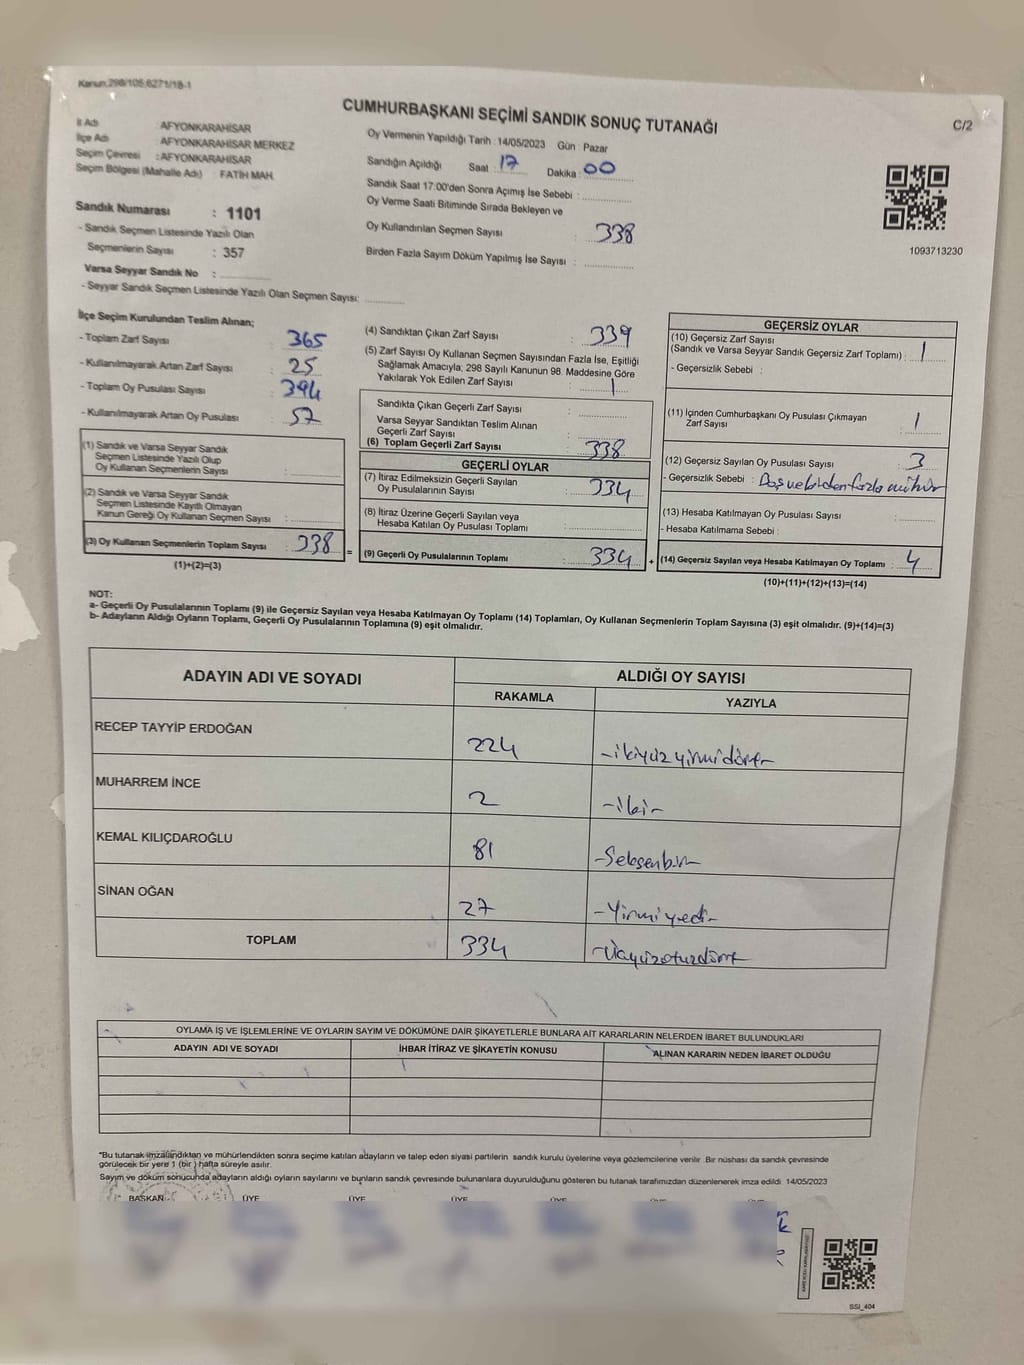 Kanun:298/105;6271/18-1
CUMHURBAŞKANI SEÇİMİ SANDIK SONUÇ TUTANAĞI
C/2
İl Adı : AFYONKARAHİSAR
İlçe Adı : AFYONKARAHİSAR MERKEZ
Seçim Çevresi : AFYONKARAHİSAR
Seçim Bölgesi (Mahalle Adı) : FATİH MAH.
Oy Vermenin Yapıldığı Tarih : 14/05/2023 Gün : Pazar
Sandığın Açıldığı Saat : 17 Dakika : 00
Sandık Saat 17:00'den Sonra Açımış İse Sebebi :
Oy Verme Saati Bitiminde Sırada Bekleyen ve
Oy Kullandırılan Seçmen Sayısı : 338
Birden Fazla Sayım Döküm Yapılmış İse Sayısı :
1093713230
Sandık Numarası : 1101
- Sandık Seçmen Listesinde Yazılı Olan
Seçmenlerin Sayısı : 357
Varsa Seyyar Sandık No :
- Seyyar Sandık Seçmen Listesinde Yazılı Olan Seçmen Sayısı:
İlçe Seçim Kurulundan Teslim Alınan;
- Toplam Zarf Sayısı : 365
- Kullanılmayarak Artan Zarf Sayısı : 25
- Toplam Oy Pusulası Sayısı : 394
- Kullanılmayarak Artan Oy Pusulası : 57
(1) Sandık ve Varsa Seyyar Sandık
Seçmen Listesinde Yazılı Olup
Oy Kullanan Seçmenlerin Sayısı :
(2) Sandık ve Varsa Seyyar Sandık
Seçmen Listesinde Kayıtlı Olmayan
Kanun Gereği Oy Kullanan Seçmen Sayısı :
(3) Oy Kullanan Seçmenlerin Toplam Sayısı : 338
(1)+(2)=(3)
=
(4) Sandıktan Çıkan Zarf Sayısı : 339
(5) Zarf Sayısı Oy Kullanan Seçmen Sayısından Fazla İse, Eşitliği
Sağlamak Amacıyla; 298 Sayılı Kanunun 98. Maddesine Göre
Yakılarak Yok Edilen Zarf Sayısı : 1
Sandıkta Çıkan Geçerli Zarf Sayısı :
Varsa Seyyar Sandıktan Teslim Alınan
Geçerli Zarf Sayısı :
(6) Toplam Geçerli Zarf Sayısı : 338
GEÇERLİ OYLAR
(7) İtiraz Edilmeksizin Geçerli Sayılan
Oy Pusulalarının Sayısı : 334
(8) İtiraz Üzerine Geçerli Sayılan veya
Hesaba Katılan Oy Pusulası Toplamı :
(9) Geçerli Oy Pusulalarının Toplamı : 334
+
GEÇERSİZ OYLAR
(10) Geçersiz Zarf Sayısı
(Sandık ve Varsa Seyyar Sandık Geçersiz Zarf Toplamı) : 1
- Geçersizlik Sebebi :
(11) İçinden Cumhurbaşkanı Oy Pusulası Çıkmayan
Zarf Sayısı : 1
(12) Geçersiz Sayılan Oy Pusulası Sayısı : 3
- Geçersizlik Sebebi : Boş ve birden fazla mühür
(13) Hesaba Katılmayan Oy Pusulası Sayısı :
- Hesaba Katılmama Sebebi :
(14) Geçersiz Sayılan veya Hesaba Katılmayan Oy Toplamı : 4
(10)+(11)+(12)+(13)=(14)
NOT:
a- Geçerli Oy Pusulalarının Toplamı (9) ile Geçersiz Sayılan veya Hesaba Katılmayan Oy Toplamı (14) Toplamları, Oy Kullanan Seçmenlerin Toplam Sayısına (3) eşit olmalıdır. (9)+(14)=(3)
b- Adayların Aldığı Oyların Toplamı, Geçerli Oy Pusulalarının Toplamına (9) eşit olmalıdır.
ADAYIN ADI VE SOYADI ALDIĞI OY SAYISI
RAKAMLA YAZIYLA
RECEP TAYYİP ERDOĞAN 224 -ikiyüz yirmidört-
MUHARREM İNCE 2 -iki-
KEMAL KILIÇDAROĞLU 81 -Seksenbir-
SİNAN OĞAN 27 -Yirmiyedi-
TOPLAM 334 -Üçyüzotuzdört-
OYLAMA İŞ VE İŞLEMLERİNE VE OYLARIN SAYIM VE DÖKÜMÜNE DAİR ŞİKAYETLERLE BUNLARA AİT KARARLARIN NELERDEN İBARET BULUNDUKLARI
ADAYIN ADI VE SOYADI İHBAR İTİRAZ VE ŞİKAYETİN KONUSU ALINAN KARARIN NEDEN İBARET OLDUĞU
*Bu tutanak imzalandıktan ve mühürlendikten sonra seçime katılan adayların ve talep eden siyasi partilerin sandık kurulu üyelerine veya gözlemcilerine verilir. Bir nüshası da sandık çevresinde
görülecek bir yere 1 (bir) hafta süreyle asılır.
Sayım ve döküm sonucunda adayların aldığı oyların sayılarını ve bunların sandık çevresinde bulunanlara duyurulduğunu gösteren bu tutanak tarafımızdan düzenlenerek imza edildi. 14/05/2023
BAŞKAN ÜYE ÜYE ÜYE ÜYE
SSI_404